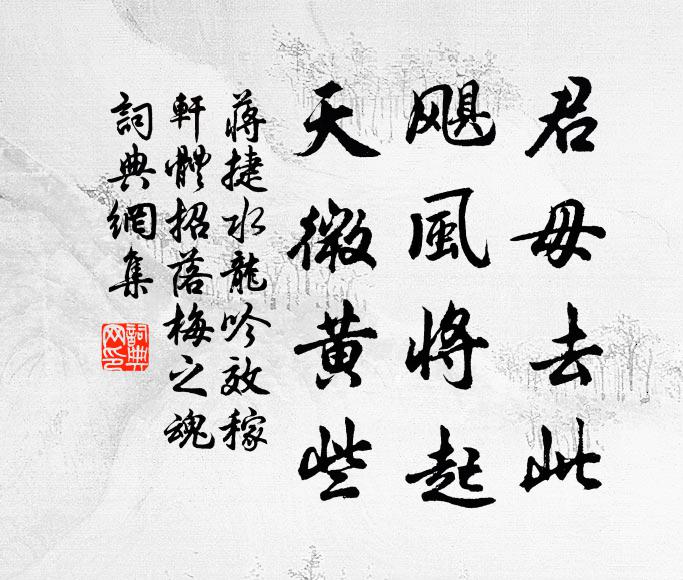 君毋去此
飓風将起
天微黄些
蒋捷水龍吟效稼
軒體招落梅之魂
詞典網集
詞典网印